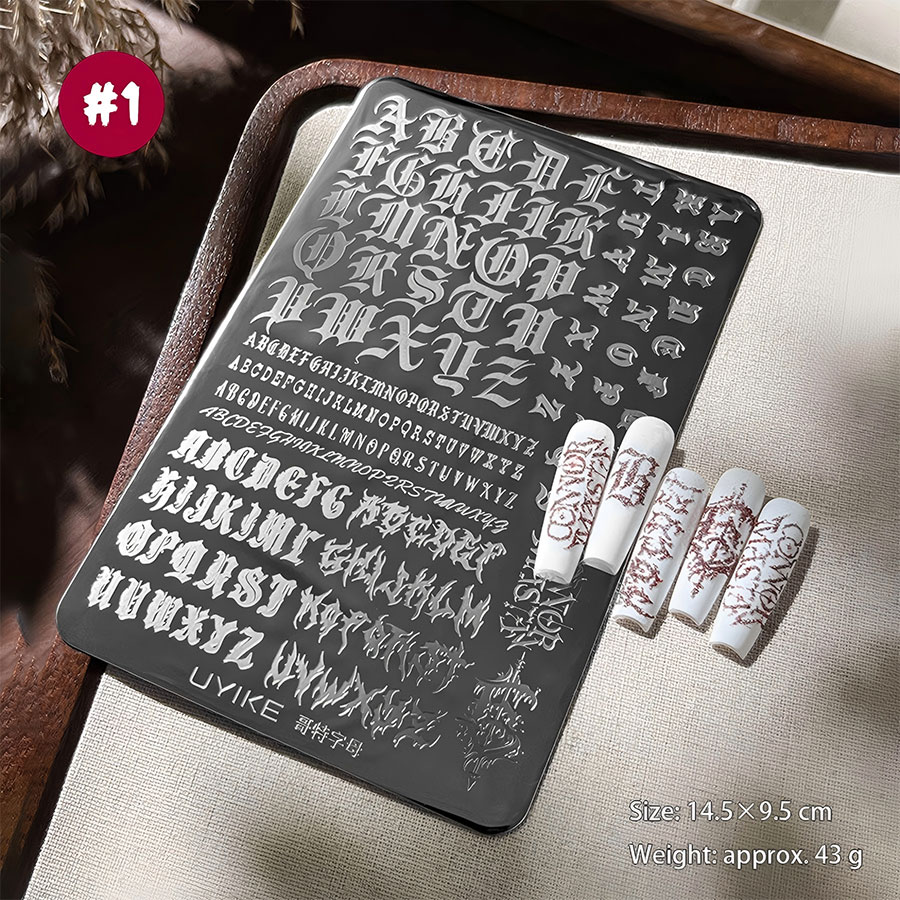 #1
A B C D E
F G H I J K
L M N O P
Q R S T U
V W X Y Z
ABCDEFGHIJKLMNOPQRSTUVWXYZ
ABCDEFGHIJKLMNOPQRSTUVWXYZ
ABCDEFGHIJKLMNOPQRSTUVWXYZ
ABCDEFGHIJKLMNOPQRSTUVWXYZ
ABCDEFG
HIJKLMN
OPQRST
UVWXYZ
ABCDEF
GHIJKLM
NOPQRST
UVWXYZ
UYIKE 哥特字母
CONNOR
S
CONNOR
Size: 14.5×9.5 cm
Weight: approx. 43 g